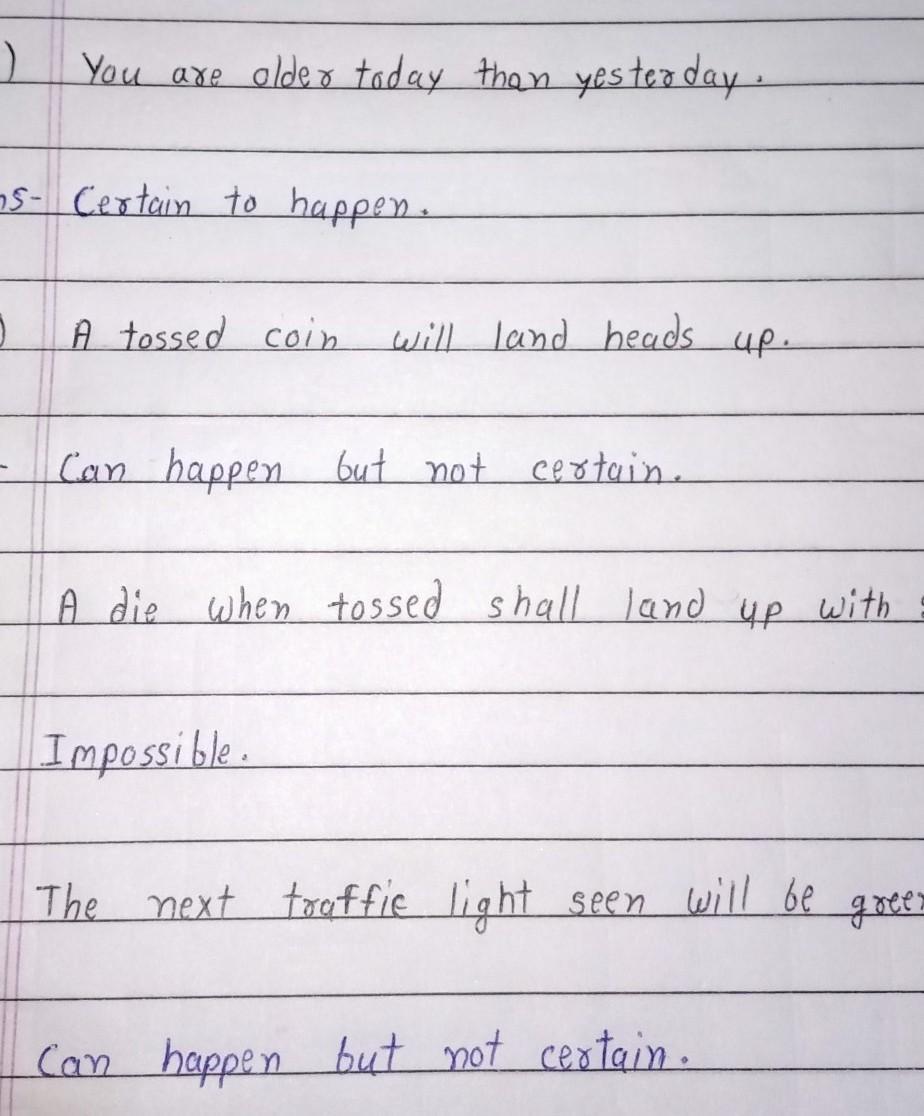 ) You are older today than yesterday.
ns- Certain to happen.
) A tossed coin will land heads up.
- Can happen but not certain.
A die when tossed shall land up with
Impossible.
The next traffic light seen will be green
Can happen but not certain.